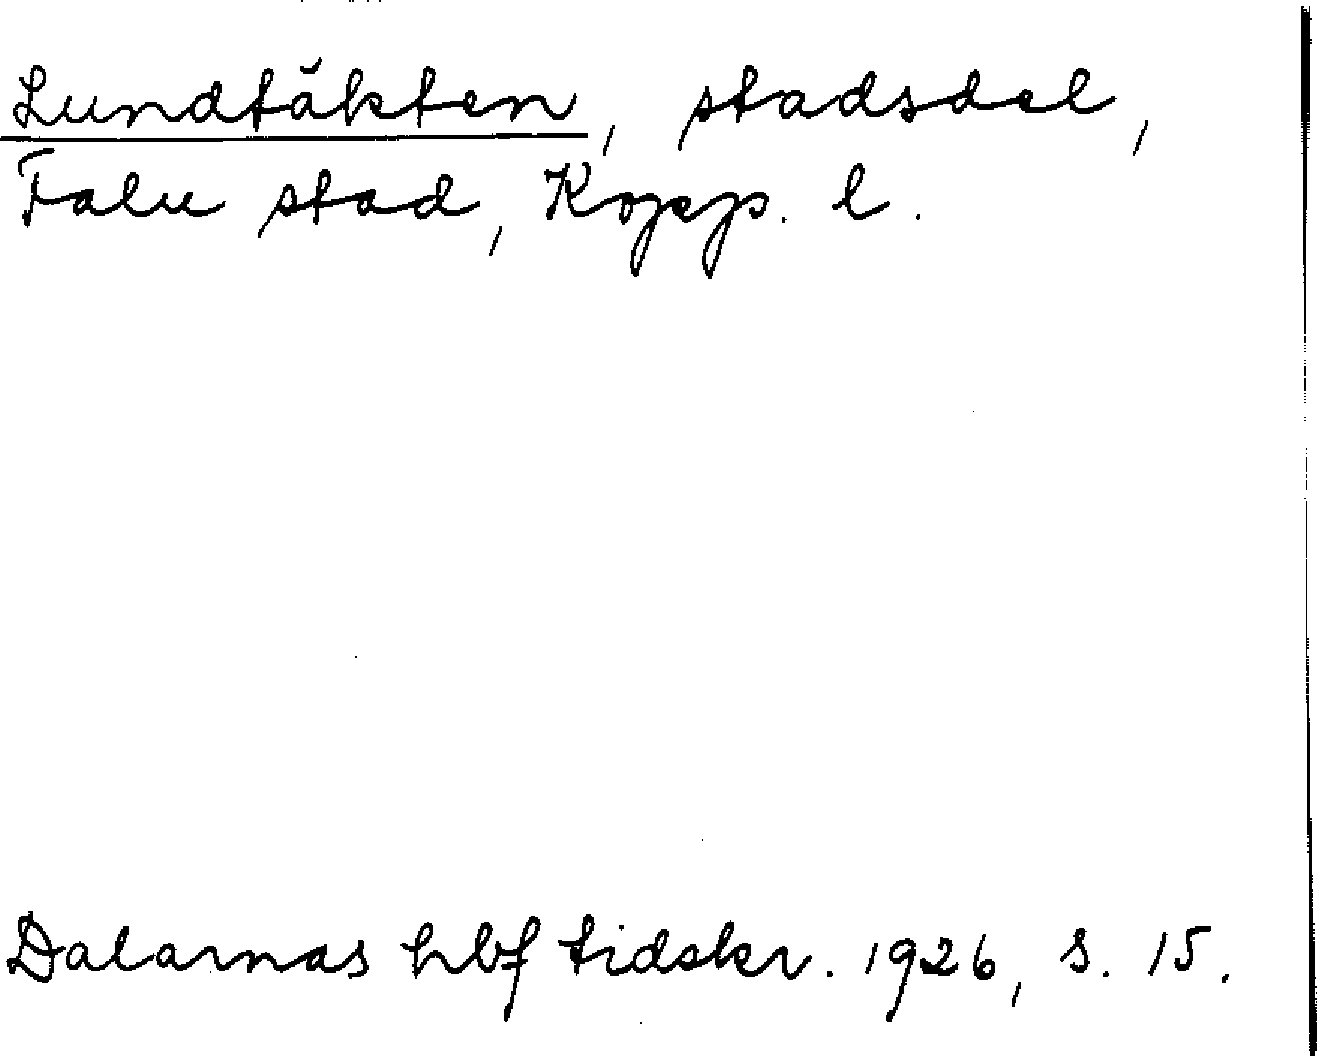 Lundtäkten, stadsdel,
Falu stad, Kopp. l.
Dalarnas hbf tidskr. 1926, s. 15.